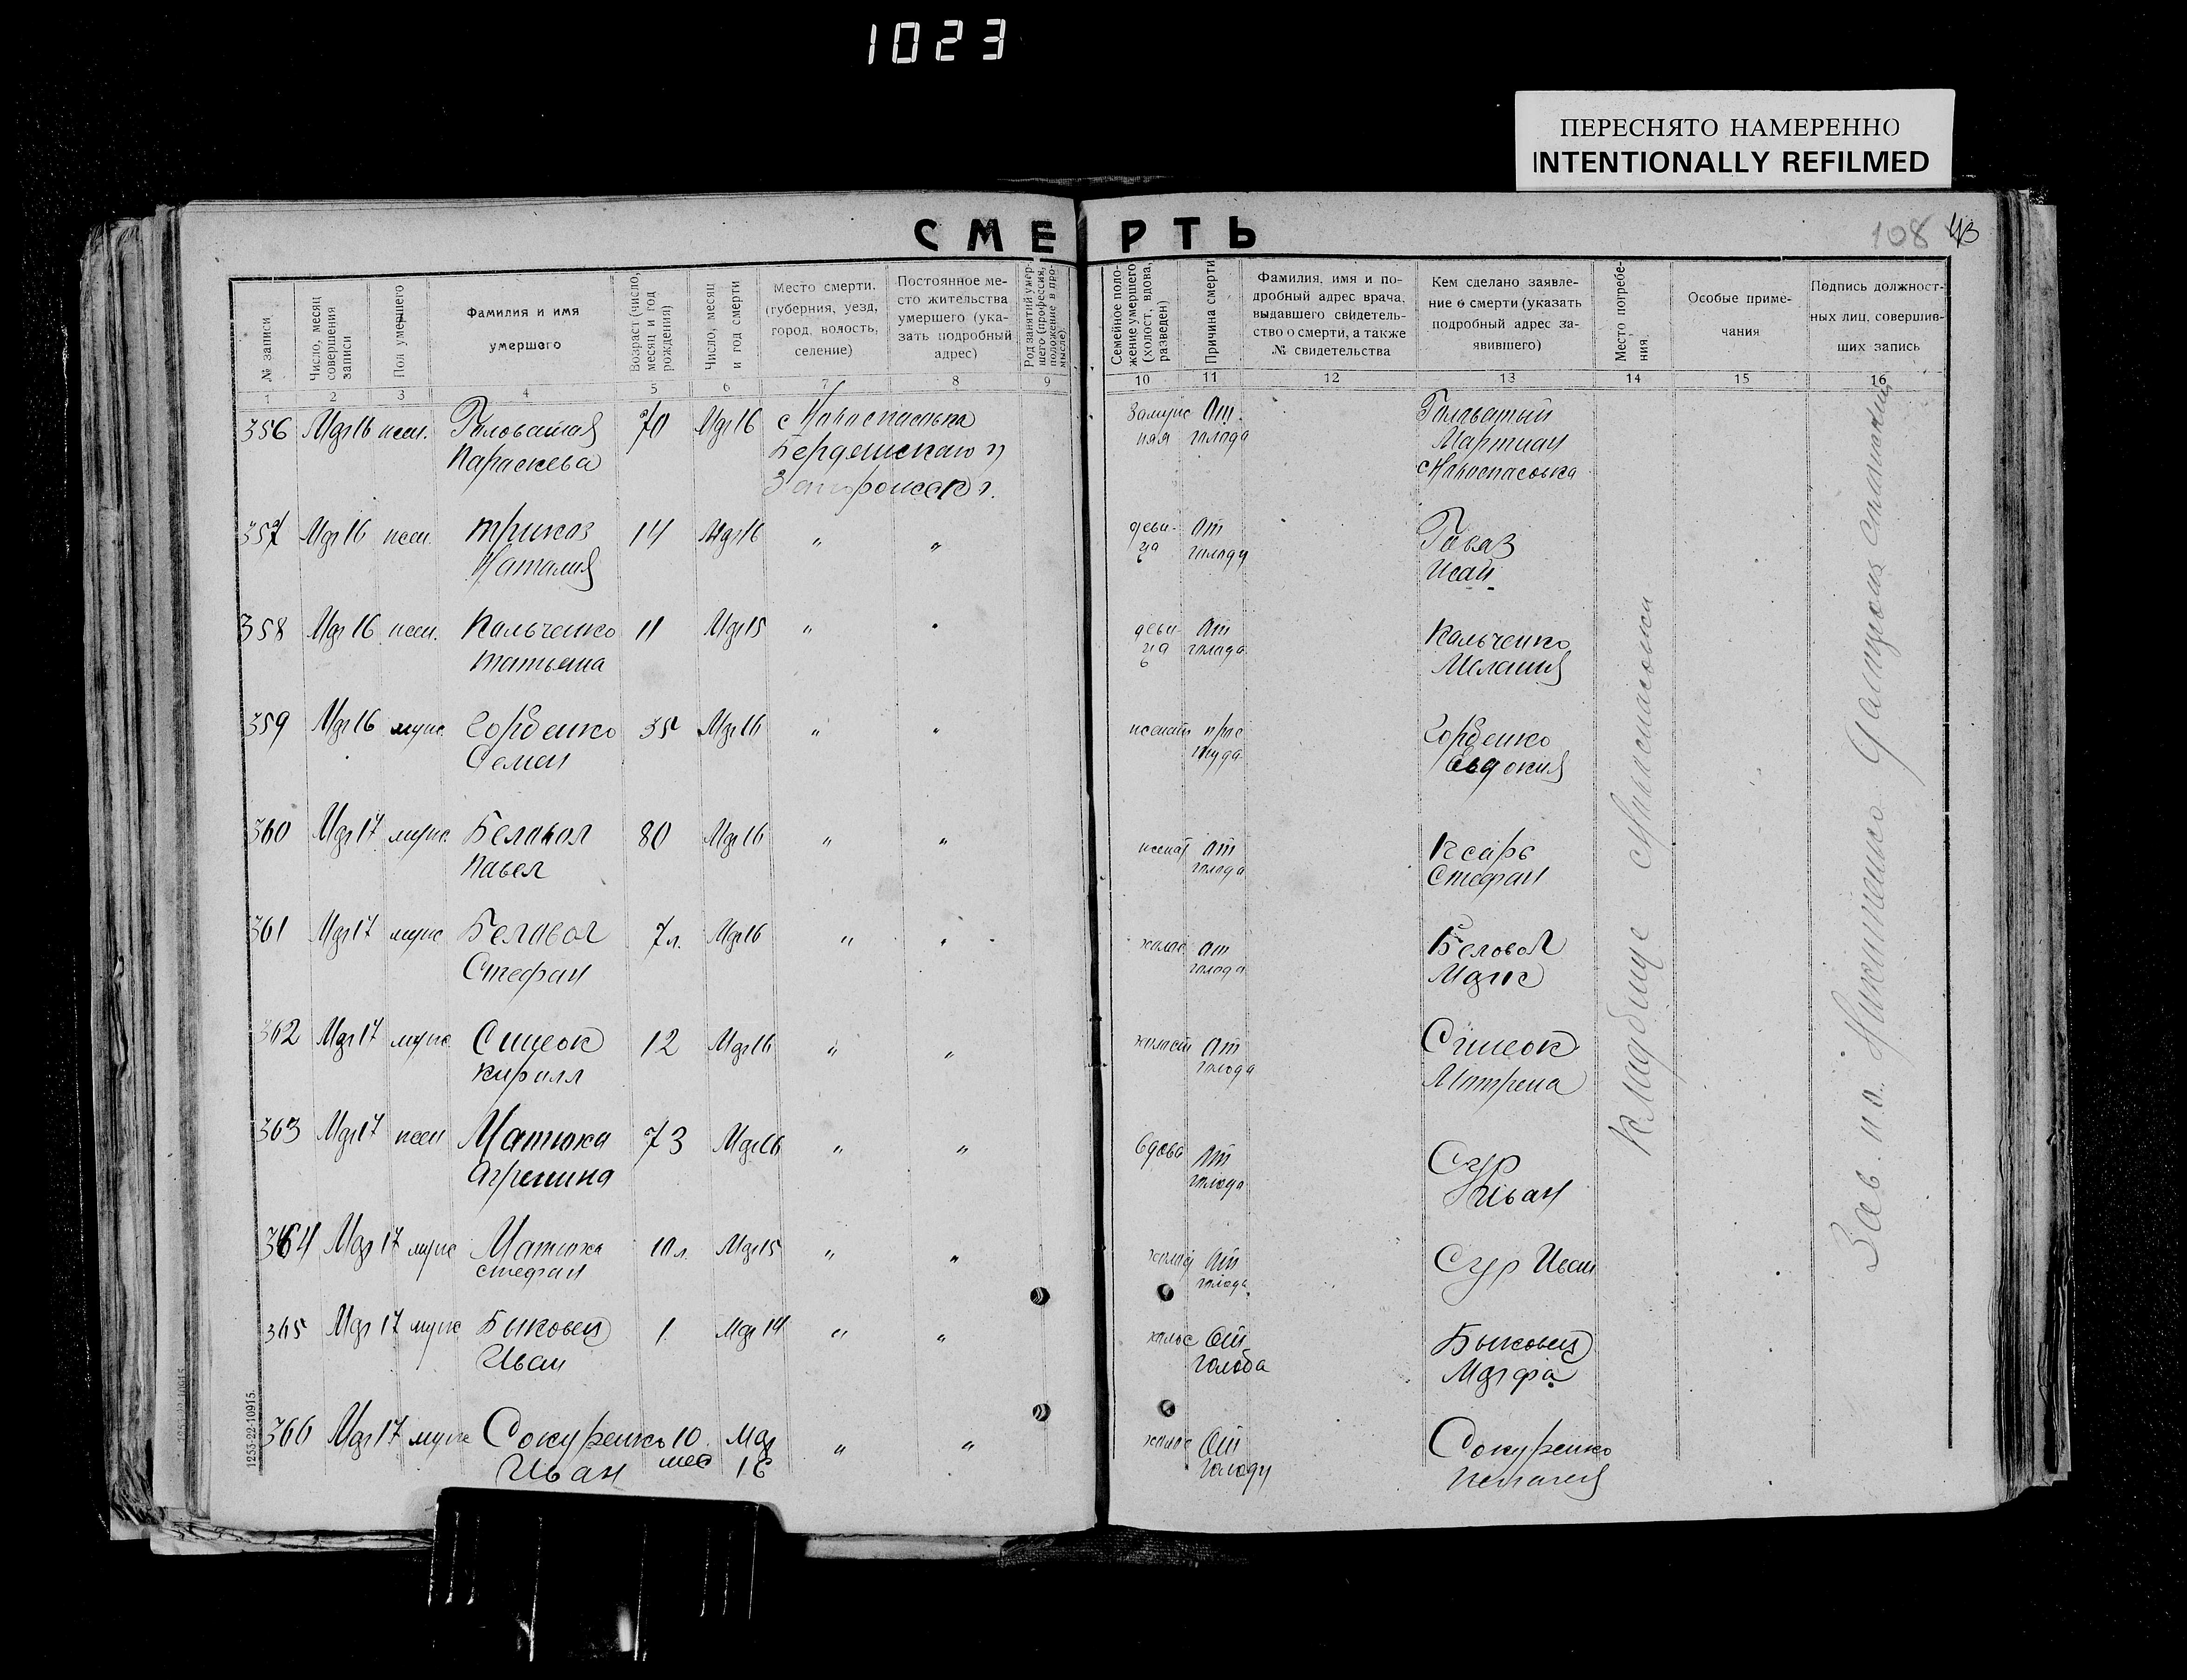 1023
ПЕРЕСНЯТО НАМЕРЕННО
INTENTIONALLY REFILMED
СМЕРТЬ
108 43
№ записи
Число, месяц совершения записи
Пол умершего
Фамилия и имя умершего
Возраст (число, месяц и год рождения)
Число, месяц и год смерти
Место смерти. (губерния, уезд, город, волость, селение)
Постоянное место жительства умершего (указать подробный адрес)
Род занятий умершего (профессия, положение в промысле)
Семейное положение умершего (холост, вдова, разведен)
Причина смерти
Фамилия, имя и подробный адрес врача, выдавшего свидетельство о смерти, а также № свидетельства
Кем сделано заявление о смерти (указать подробный адрес заявившего)
Место погребения
Особые примечания
Подпись должностных лиц, совершивших запись
1 2 3 4 5 6 7 8 9 10 11 12 13 14 15 16
356 Мая 16 жен. Головатая 70 Мая 16 с Новоспасовка Замуж От Головатый
Параскева Бердянского у няя голода Мартиан
с Новоспасовка
357 Мая 16 жен. 14 Мая 16 " " деви От
Наталия ца голоду Исай
358 Мая 16 жен. Кальченко 11 Мая 15 " " деви От Кальченко
Татьяна ца голода Мелания
359 Мая 16 муж. Горбенко 35 Мая 16 " " женат Горбенко
Семен Евдокия
360 Мая 17 муж. Беловол 80 Мая 16 " " женат От
Павел голода Стефан
361 Мая 17 муж Беловол 7 л. Мая 16 " " холос От Беловол
Стефан голода
362 Мая 17 муж. 12 Мая 16 " " холост От
Кирилл голода Мотрена
363 Мая 17 жен Матюха 73 Мая 16 " " вдова От Сур
Агрепина голода Иван
364 Мая 17 муж Матюха 10 л. Мая 15 " " холост От Сур Иван
Стефан голода
365 Мая 17 муж Быковец 1 Мая 14 " " холос От Быковец
Иван голода Марфа
366 Мая 17 муж Сокуренко 10 Мая " " холос От Сокуренко
Иван мес 16 голоду Пелагия
Кладбище с Новоспасовки
1253-22-10915.